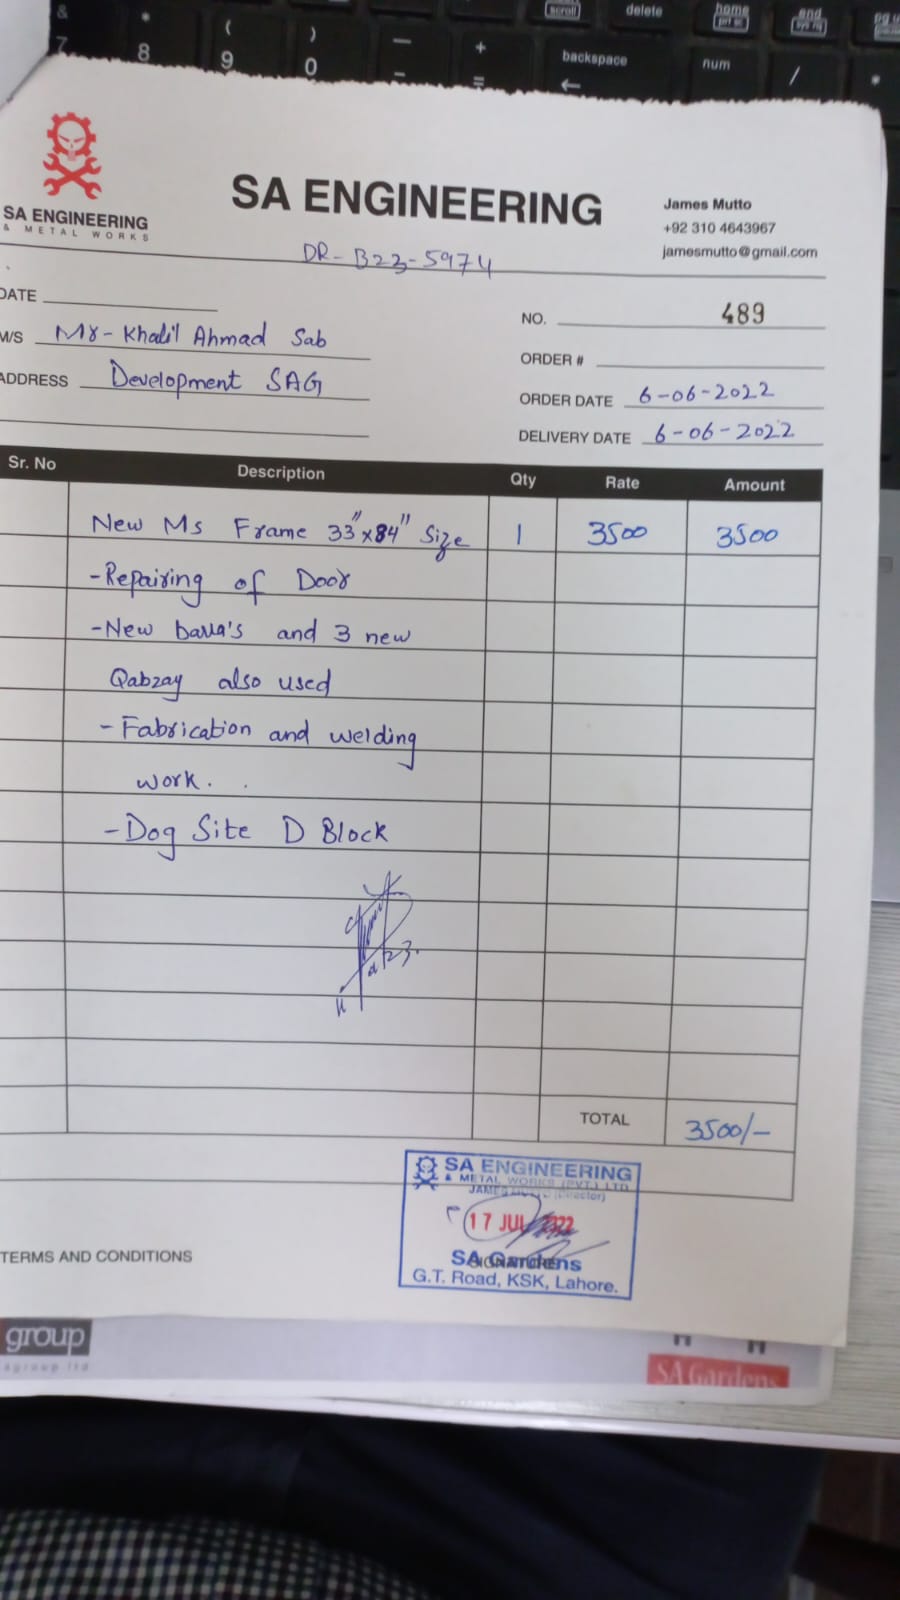 & * ( ) — + scroll delete home prt sc end sys rq pg u
7 8 9 0 - = backspace num / *
SA ENGINEERING
& METAL WORKS
SA ENGINEERING
James Mutto
+92 310 4643967
jamesmutto@gmail.com
DR-B23-5974
DATE
NO. 489
M/S Mr-Khalil Ahmad Sab
ORDER #
ADDRESS Development SAG
ORDER DATE 6-06-2022
DELIVERY DATE 6-06-2022
Sr. No Description Qty Rate Amount
New Ms Frame 33"x84" Size 1 3500 3500
-Repairing of Door
-New barra's and 3 new
Qabzay also used
-Fabrication and welding
work.
-Dog Site D Block
TOTAL 3500/-
SA ENGINEERING
& METAL WORKS (PVT.) LTD
(Director)
17 JUL
SA Gardens
SIGNATURE
G.T. Road, KSK, Lahore.
TERMS AND CONDITIONS
group
SA Gardens